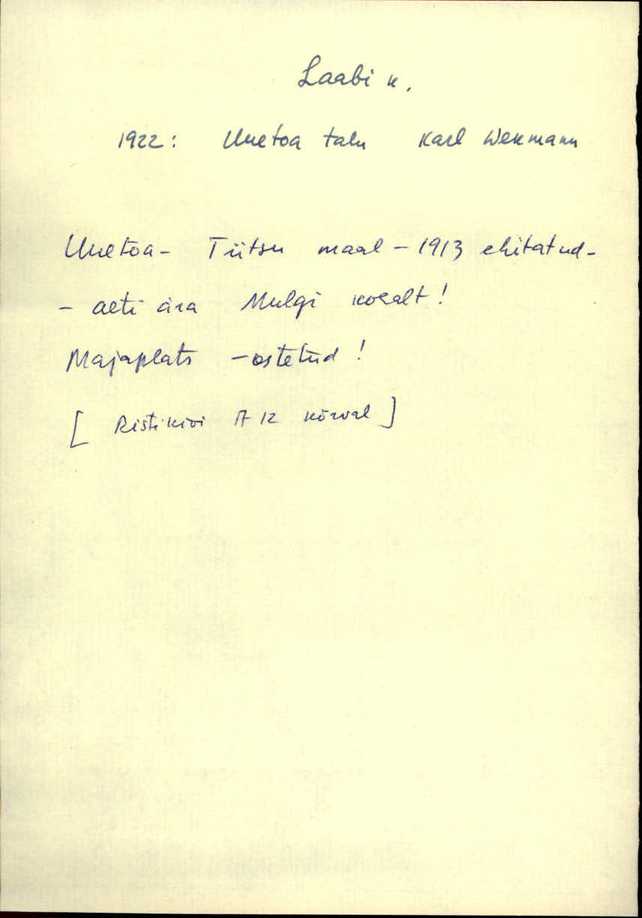 Laabi k.
1922: Uuetoa talu Karl Wekmann
Uuetoa - Tiitsu maal - 1913 ehitatud -
- aeti ära Mulgi kohalt!
Majaplats - ostetud!
[ Ristikivi A 12 kõrval ]